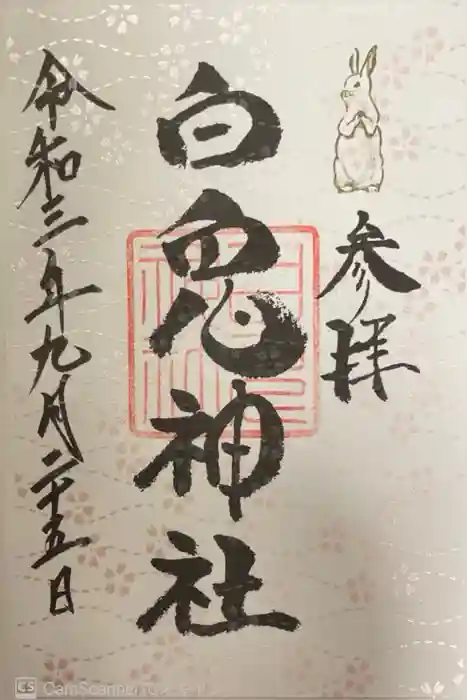 参拝
白兎神社
令和三年九月二十五日
CS CamScanner